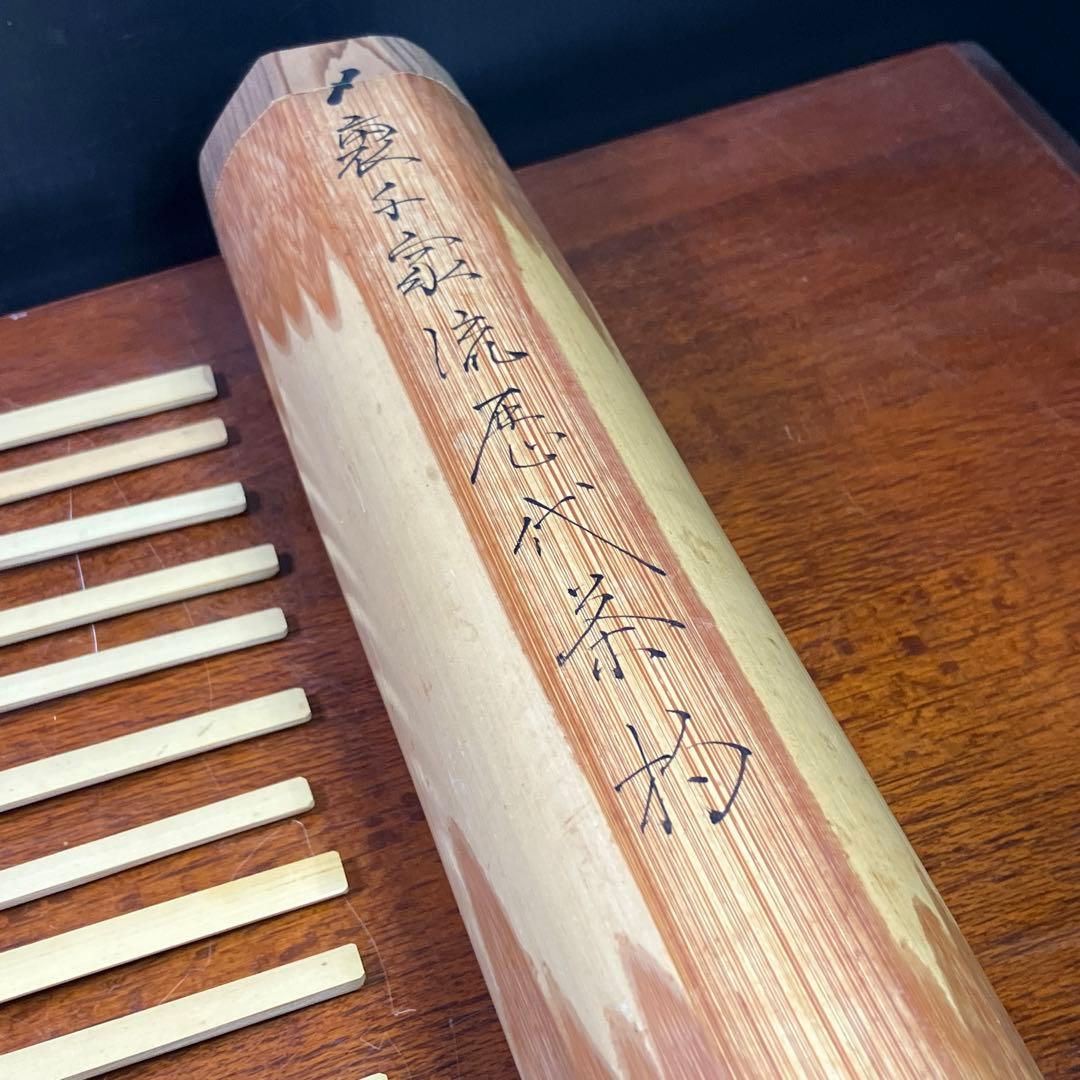 裏千家流歴代茶杓